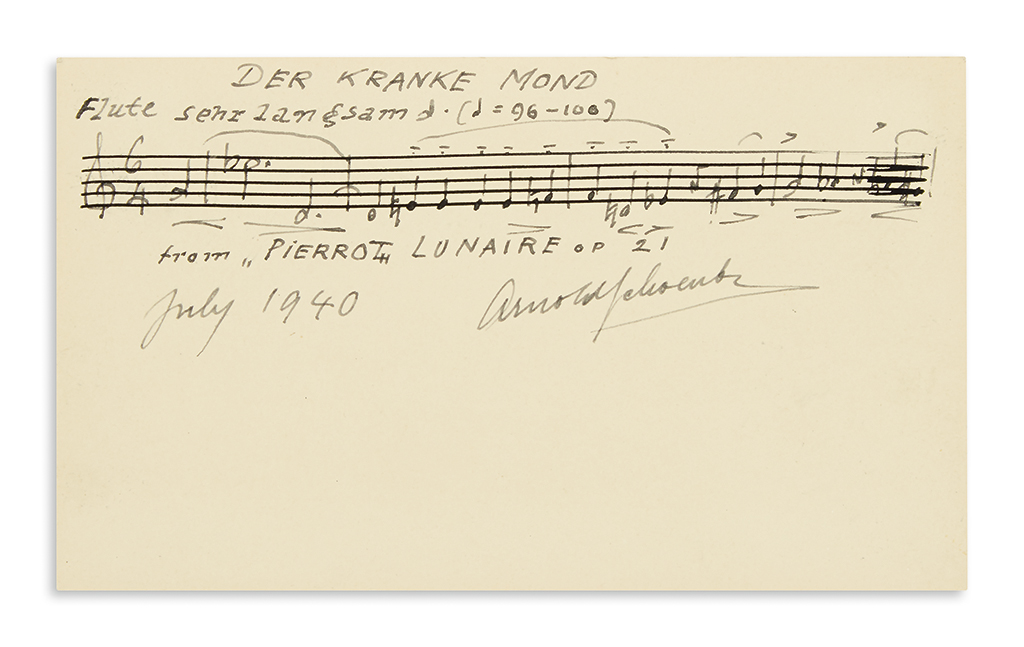 DER KRANKE MOND
Flute sehr langsam d. (d = 96-100)
6
4
from „PIERROT„ LUNAIRE op 21
July 1940
Arnold Schoenberg